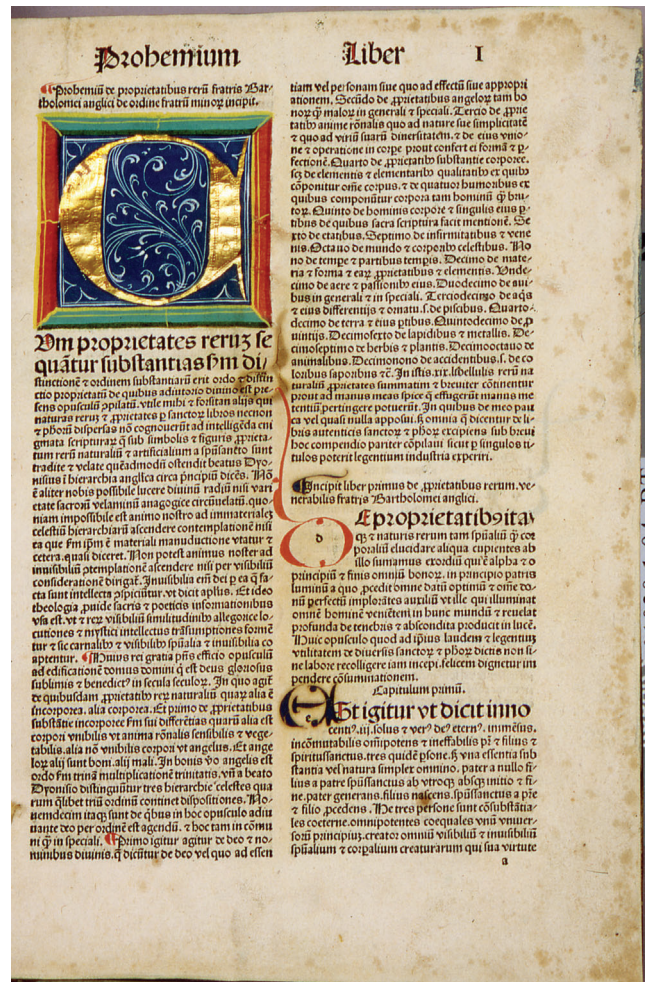 Prohemium Liber I
Prohemiũ de proprietatibus rerũ fratris Bar⸗
tholomei anglici de ordine fratrũ minoꝝ incipit.
C
Um proprietates reruz se
quãtur substantias ẜm di⸗
stinctionẽ ⁊ ordinem substantiarũ erit ordo ⁊ distin
ctio proprietatũ de quibus adiutorio diuino est pre⸗
sens opusculũ ꝯpilatũ. vtile mihi ⁊ forsitan alijs qui
naturas rerum ⁊ ꝓprietates ꝑ sanctoꝝ libros necnon
⁊ pħoꝝ dispersas nõ cognouerũt ad intelligẽda eni
gmata scripturaꝝ q̃ sub simbolis ⁊ figuris ꝓprieta⸗
tum rerũ naturaliũ ⁊ artificialium a spũsancto sunt
tradite ⁊ velate quẽadmodũ ostendit beatus Dyo⸗
nisius ĩ hierarchia anglica circa pͥncipiũ dicẽs. Nõ
ẽ aliter nobis possibile lucere diuinũ radiũ nisi vari
etate sacroꝝ velaminũ anagogice circũuelatũ. quo⸗
niam impossibile est animo nostro ad immaterialẽ
celestiũ hierarchiaꝝ ascendere contemplationẽ nisi
ea que ẜm ipm̃ ẽ materiali manuductione vtatur ⁊
cetera. quasi diceret. Non potest animus noster ad
inuisibiliũ ꝯtemplationẽ ascendere nisi per visibiliũ
considerationẽ dirigat̃. Inuisibilia em̃ dei ꝑ ea q̃ fa⸗
cta sunt intellecta ꝯspiciũtur. vt dicit apl̃us. Et ideo
theologia ꝓuide sacris ⁊ poeticis informationibus
vsa est. vt ⁊ reꝝ visibiliũ similitudinibꝰ allegorice lo⸗
cutiones ⁊ mystici intellectus trãsumptiones formẽ
tur ⁊ sic carnalibꝰ ⁊ visibilibꝰ spũalia ⁊ inuisibilia co
aptentur. Huius rei gratia pñs efficio opusculũ
ad edificationẽ domus domini q̃ est deus gloriosus
sublimis ⁊ benedictꝰ in secula seculoꝝ. In quo agit̃
de quibusdam ꝓprietatibꝰ reꝝ naturaliũ quaꝝ alia ẽ
incorporea. alia corporea. Et primo de ꝓprietatibus
substãtie incorporee ẜm sui differẽtias quarũ alia est
corpori vnibilis vt anima rõnalis sensibilis ⁊ vege⸗
tabilis. alia nõ vnibilis corpori vt angelus. Et ange
loꝝ alij sunt boni. alij mali. In bonis ꝟo angelis est
ordo ẜm trinã multiplicationẽ trinitatis. vñ a beato
Dyonisio distinguũtur tres hierarchie celestes qua
rum q̃libet triũ ordinũ continet dispositiones. No⸗
uemdecim itaqꝫ sunt de q̃bus in hoc opusculo adiu
uante deo per ordinẽ est agendũ. ⁊ hoc tam in cõmu
ni q̃ꝫ in speciali. Primo igitur agitur de deo ⁊ no⸗
minibus diuinis. q̃ dicũtur de deo vel quo ad essen
tiam vel personam siue quo ad effectũ siue appropri
ationem. Secũdo de ꝓprietatibus angeloꝝ tam bo
noꝝ q̃ꝫ maloꝝ in generali ⁊ speciali. Tercio de ꝓprie
tatibꝰ anime rõnalis quo ad nature sue simplicitatẽ
⁊ quo ad viriũ suarũ diuersitatem. ⁊ de eius vnio⸗
ne ⁊ operatione in corpe prout confert ei formã ⁊ ꝑ⸗
fectionẽ. Quarto de ꝓprietatibꝰ substantie corporee.
scꝫ de elementis ⁊ elementaribꝰ qualitatibꝰ ex quibꝰ
cõponitur om̃e corpus. ⁊ de quatuor humoribus ex
quibus componũtur corpora tam hominũ q̃ꝫ bru⸗
toꝝ. Quinto de hominis corpore ⁊ singulis eius ꝑ⸗
tibus de quibus sacra scriptura facit mentionẽ. Se
xto de etatibus. Septimo de infirmitatibus ⁊ vene
nis. Octauo de mundo ⁊ corporibꝰ celestibus. No
no de tempe ⁊ partibus tempis. Decimo de mate⸗
ria ⁊ forma ⁊ eaꝝ ꝓprietatibus ⁊ elementis. Unde⸗
cimo de aere ⁊ passionibꝰ eius. Duodecimo de aui⸗
bus in generali ⁊ in speciali. Terciodecimo de aq̃s
⁊ eius differentijs ⁊ ornatu. s. de piscibus. Quarto⸗
decimo de terra ⁊ eius ꝑtibus. Quintodecimo de ꝓ
uintijs. Decimosexto de lapidibus ⁊ metallis. De⸗
cimoseptimo de herbis ⁊ plantis. Decimooctauo de
animalibus. Decimonono de accidentibus. s. de co
loribus saporibus ⁊c̃. In istis. xix. libellulis rerũ na
turaliũ ꝓprietates summatim ⁊ breuiter cõtinentur
prout ad manus meas spice q̃ effugerũt manus me
tentiũ pertingere potuerũt. In quibus de meo pau
ca vel quasi nulla apposui. sꝫ omnia q̃ dicentur de li⸗
bris autenticis sanctoꝝ ⁊ pħoꝝ excipiens sub breui
hoc compendio pariter cõpilaui sicut ꝑ singulos ti⸗
tulos poterit legentium industria experiri.
Incipit liber primus de ꝓprietatibus rerum. ve⸗
nerabilis fratris Bartholomei anglici.
d
E proprietatibꝰ ita
qꝫ ⁊ naturis rerum tam spũaliũ q̃ꝫ cor
poraliũ elucidare aliqua cupientes ab
illo sumamus exordiũ qui ẽ alpha ⁊ o
principiũ ⁊ finis omniũ bonoꝝ. in principio patris
luminũ a quo ꝓcedit omne datũ optimũ ⁊ om̃e do⸗
nũ perfectũ implorãtes auxiliũ vt ille qui illuminat
omnẽ hominẽ venientem in hunc mundũ ⁊ reuelat
profunda de tenebris ⁊ abscondita producit in lucẽ.
Huic opusculo quod ad ip̃ius laudem ⁊ legentiuꝫ
vtilitatem de diuersis sanctoꝝ ⁊ pħoꝝ dictis non si⸗
ne labore recolligere iam incepi. felicem dignetur im
pendere cõsummationem.
Capitulum primũ.
ESt igitur vt dicit inno
centiꝰ. iij. solus ⁊ verꝰ deꝰ eternꝰ. immẽsus.
incõmutabilis om̃ipotens ⁊ ineffabilis pr̃ ⁊ filius ⁊
spiritussanctus. tres quidẽ ꝑsone. sꝫ vna essentia sub
stantia vel natura simplex omnino. pater a nullo fi⸗
lius a patre spũssanctus ab vtroqꝫ absqꝫ initio ⁊ fi⸗
ne. pater generans. filius nascens. spũssanctus a pr̃e
⁊ filio ꝓcedens. He tres persone sunt cõsubstãtia⸗
les coeterne. omnipotentes coequales vnũ vniuer⸗
sorũ principiuꝫ. creator omniũ visibiliũ ⁊ inuisibiliũ
spũalium ⁊ corꝑalium creaturarum qui sua virtute
a